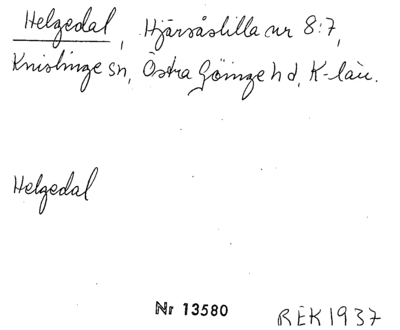 Helgedal, Hjärsåslilla nr 8:7,
Knislinge sn, Östra Göinge hd, K-län.
Helgedal
Nr 13580 REK 1937